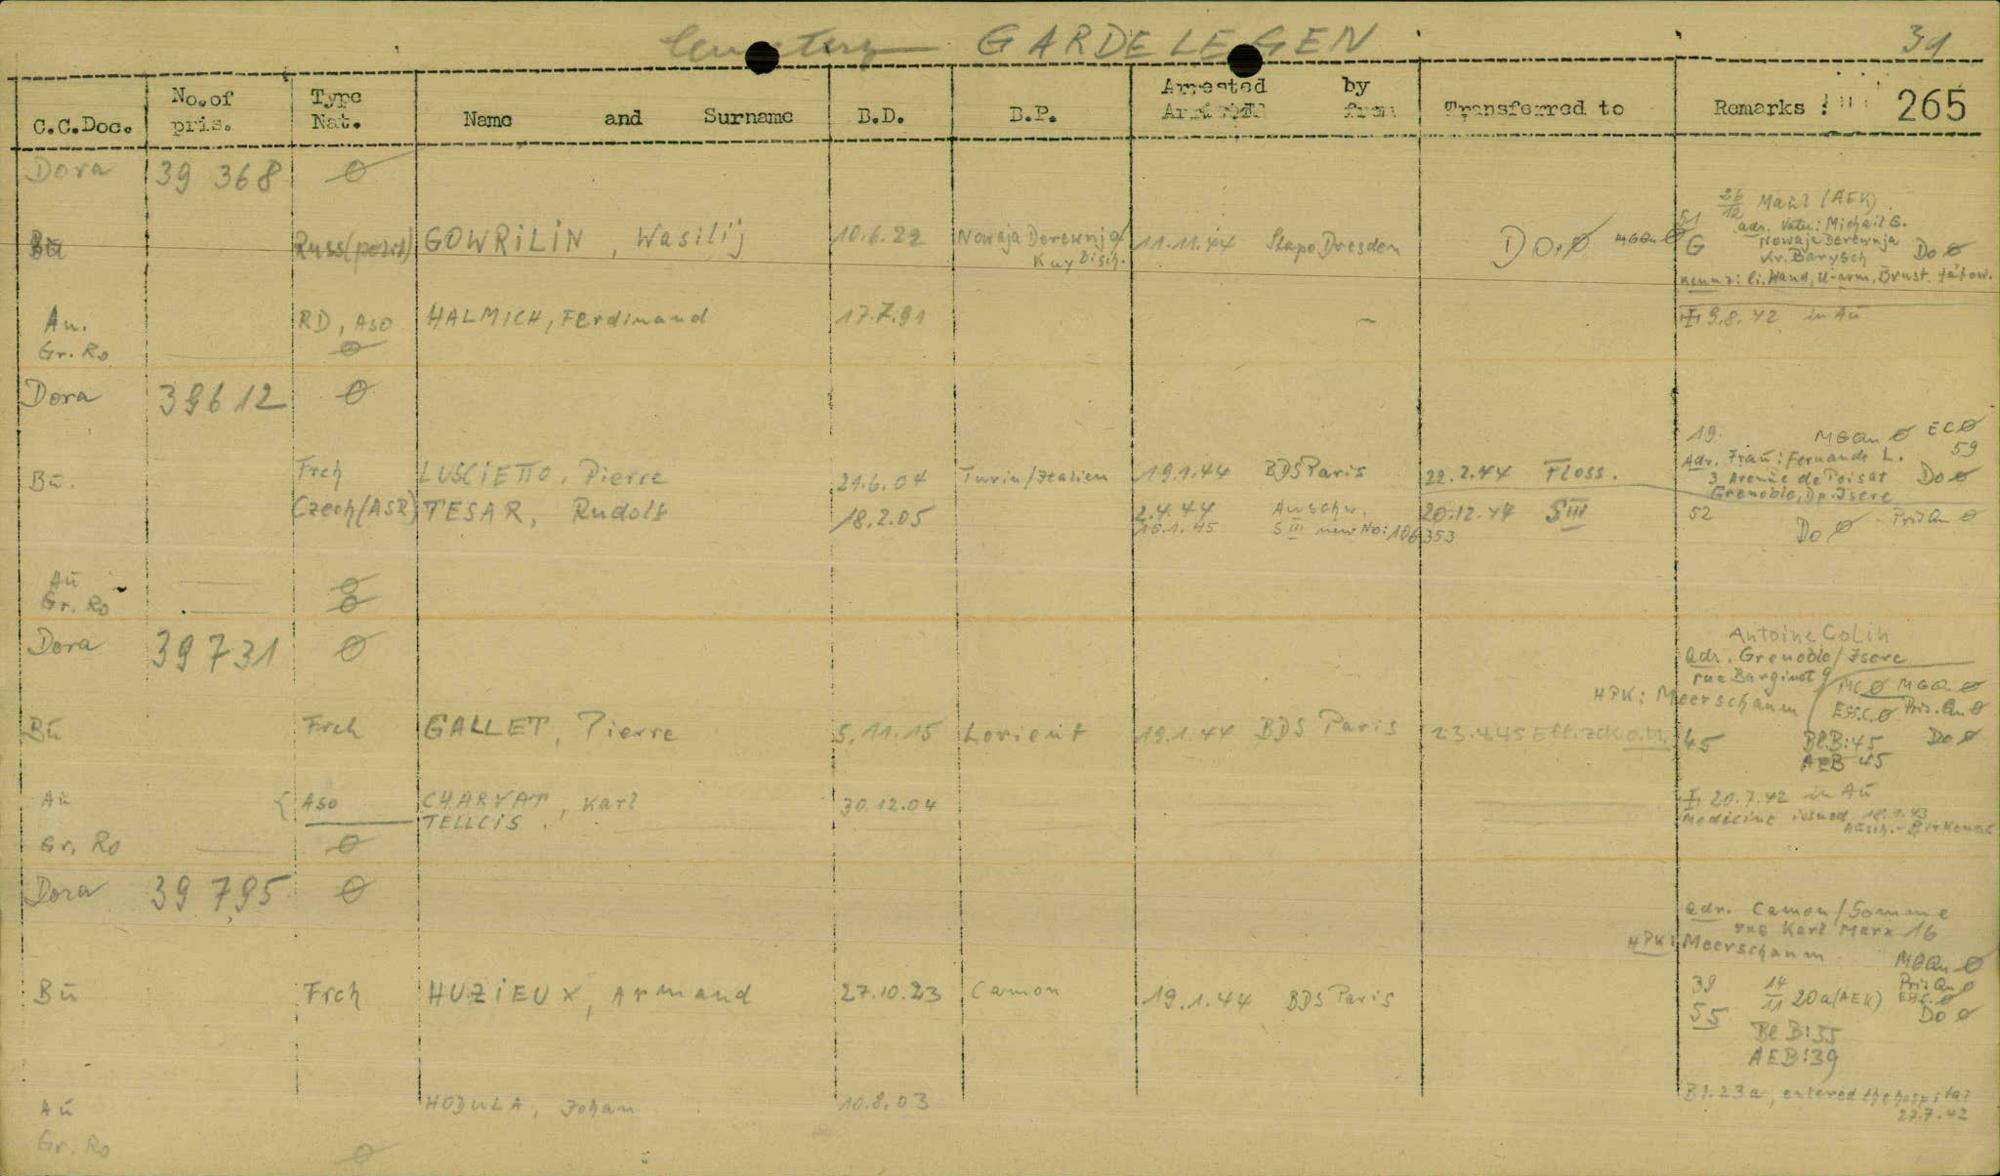 Cemetery GARDELEGEN 39
C.C.Doc. No. of pris. Type Nat. Name and Surname B.D. B.P. Arrested by Transferred to Remarks : 265
Dora 39 368 Ø
26/12 Mau1 (AEK)
51 adr. Vater: Michail G.
Bu Russ(polit) GOWRILIN, Wasilij 10.6.22 Nowaja Derewnja 11.11.44 Stapo Dresden Do Ø MGQu Ø G Nowaja Derewnja Do Ø
Kuybisch. Kr. Barysch
Kennz: li. Hand, U-arm, Brust tätow.
Au. RD, Aso HALMICH, Ferdinand 17.7.91 9.8.42 in Au
Gr. Ro — Ø
Dora 39612 Ø
19. MGQu Ø EC Ø
Adr. Frau: Fernande L. 59
Bu. Frch LUSCIETTO, Pierre 21.6.04 Turin/Italien 19.1.44 BDS Paris 22.2.44 Floss. 3 Avenue de Poisat Do Ø
Grenoble, Dp. Isere
Czech (ASR) TESAR, Rudolf 18.2.05 2.4.44 Auschw. 20.12.44 SIII 52 Pris Qu Ø
16.1.45 SIII new No: 106353 Do Ø
Au — Ø
Gr. Ro — Ø
Dora 39731 Ø
Antoine Colin
adr. Grenoble/Isere
rue Barginet 9
HPK: Meerschaum MC Ø MGQ Ø
Eff.C. Ø Pris. Qu Ø
Bu Frch GALLET, Pierre 5.11.15 Lorient 19.1.44 BDS Paris 23.4.45 Eff. zck o.M. 45 Bl.B:45 Do Ø
AEB 45
Au { Aso CHARVAT, Karl 30.12.04 20.7.42 in Au
TELLCIS Medicine issued 18.1.43
Ausch.-Birkenau
Gr. Ro — Ø
Dora 39 795 Ø
adr. Camon/Somme
rue Karl Marx 16
HPK: Meerschaum MGQu Ø
Bu Frch HUZIEUX, Armand 27.10.23 Camon 19.1.44 BDS Paris 39 14/11 20a (AEK) Pris Qu Ø
Eff.C. Ø
55 Do Ø
Bl B:55
AEB:39
Au HODULA, Johan 10.8.03 Bl. 23a, entered the hospital
27.7.42
Gr. Ro Ø